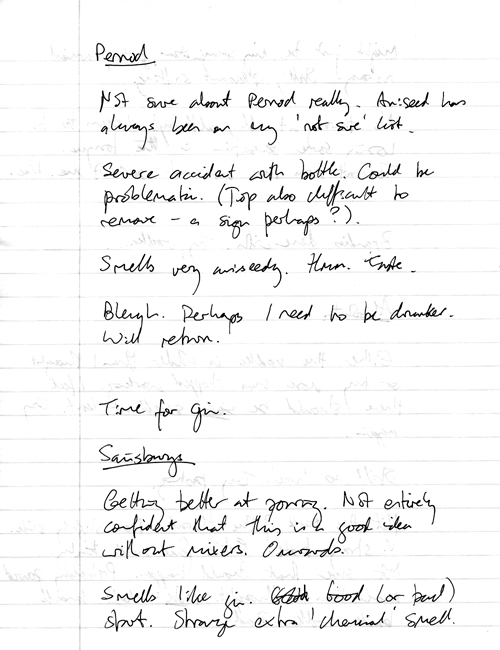 Pernod
Not sure about Pernod really. Aniseed has
always been on my 'not sure' list.
Severe accident with bottle. Could be
problematic. (Top also difficult to
remove – a sign perhaps?).
Smells very aniseedy. Hmm. Taste.
Bleugh. Perhaps I need to be drunker.
Will return.
Time for gin.
Sainsburys
Getting better at pouring. Not entirely
confident that this is a good idea
without mixers. Onwards.
Smells like gin. Good (or bad)
start. Strange extra 'chemical' smell.